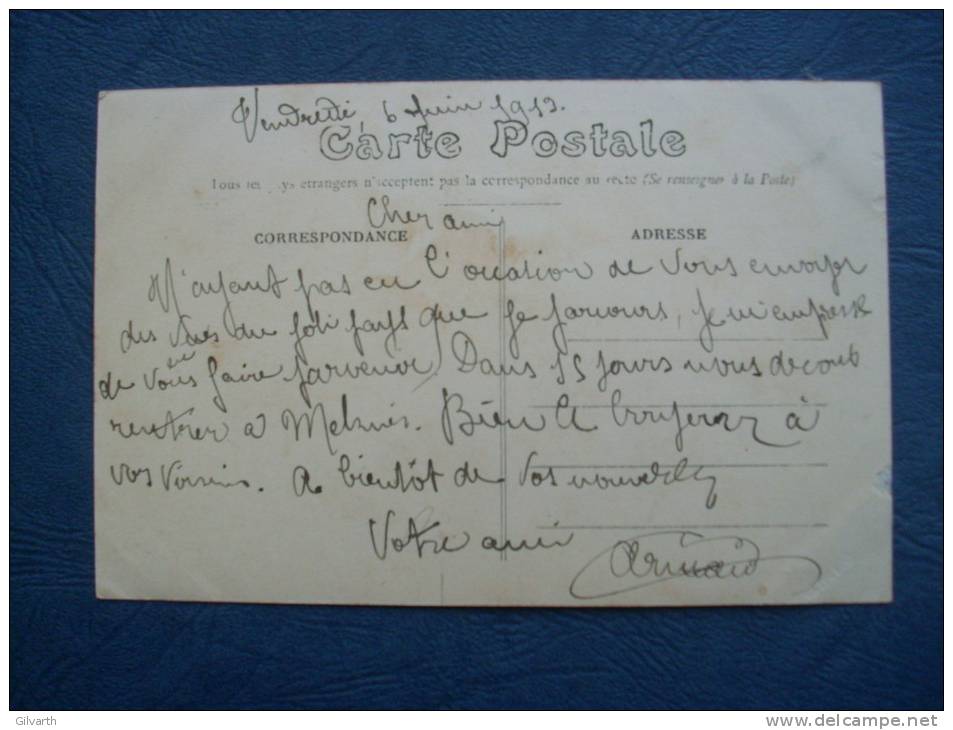 Vendredi 6 Juin 1913.
Carte Postale
Tous les pays etrangers n'acceptent pas la correspondance au recto (Se renseigner à la Poste)
Cher ami
CORRESPONDANCE
ADRESSE
N'ayant pas eu l'occasion de vous envoyer
des vues du joli pays que je parcours, je m'empresse
de vous en faire parvenir. Dans 15 jours nous devons
rentrer à Meknès. Bien le bonjour à
vos voisins. A bientôt de vos nouvelles
Votre ami
Gilvarth
www.delcampe.net